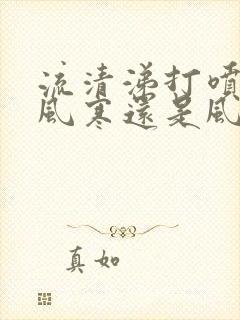 流清涕打噴
風寒還是風
真如